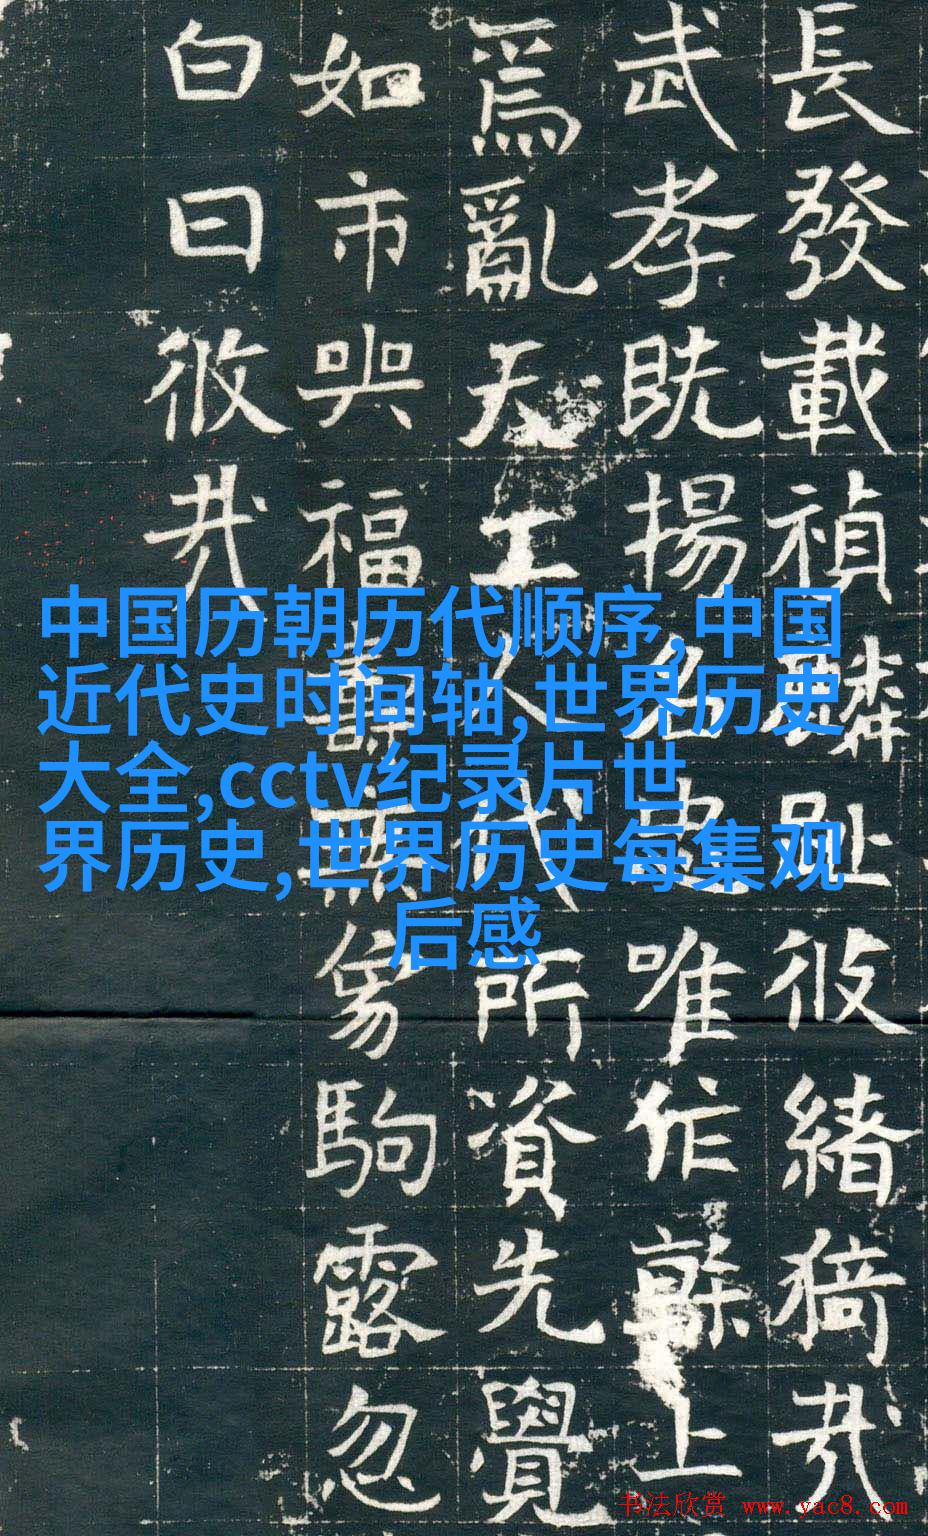 長發載禎麟趾攸緒猗哉
武孝既揚名忠唯作幹上
爲亂天工人代所資先覺
如市與福壽無象駒露忽
白日攸哉
中国历朝历代顺序,中国
近代史时间轴,世界历史
大全,cctv纪录片世
界历史,世界历史每集观
后感
书法欣赏 www.yac8.com